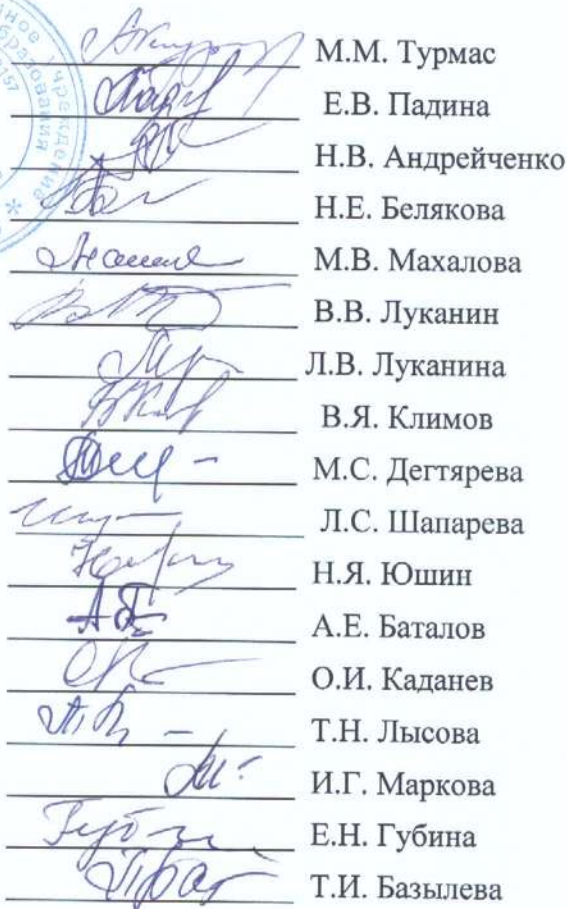 ное учреждение
образования
157
М.М. Турмас
Е.В. Падина
Н.В. Андрейченко
Н.Е. Белякова
М.В. Махалова
В.В. Луканин
Л.В. Луканина
В.Я. Климов
М.С. Дегтярева
Л.С. Шапарева
Н.Я. Юшин
А.Е. Баталов
О.И. Каданев
Т.Н. Лысова
И.Г. Маркова
Е.Н. Губина
Т.И. Базылева